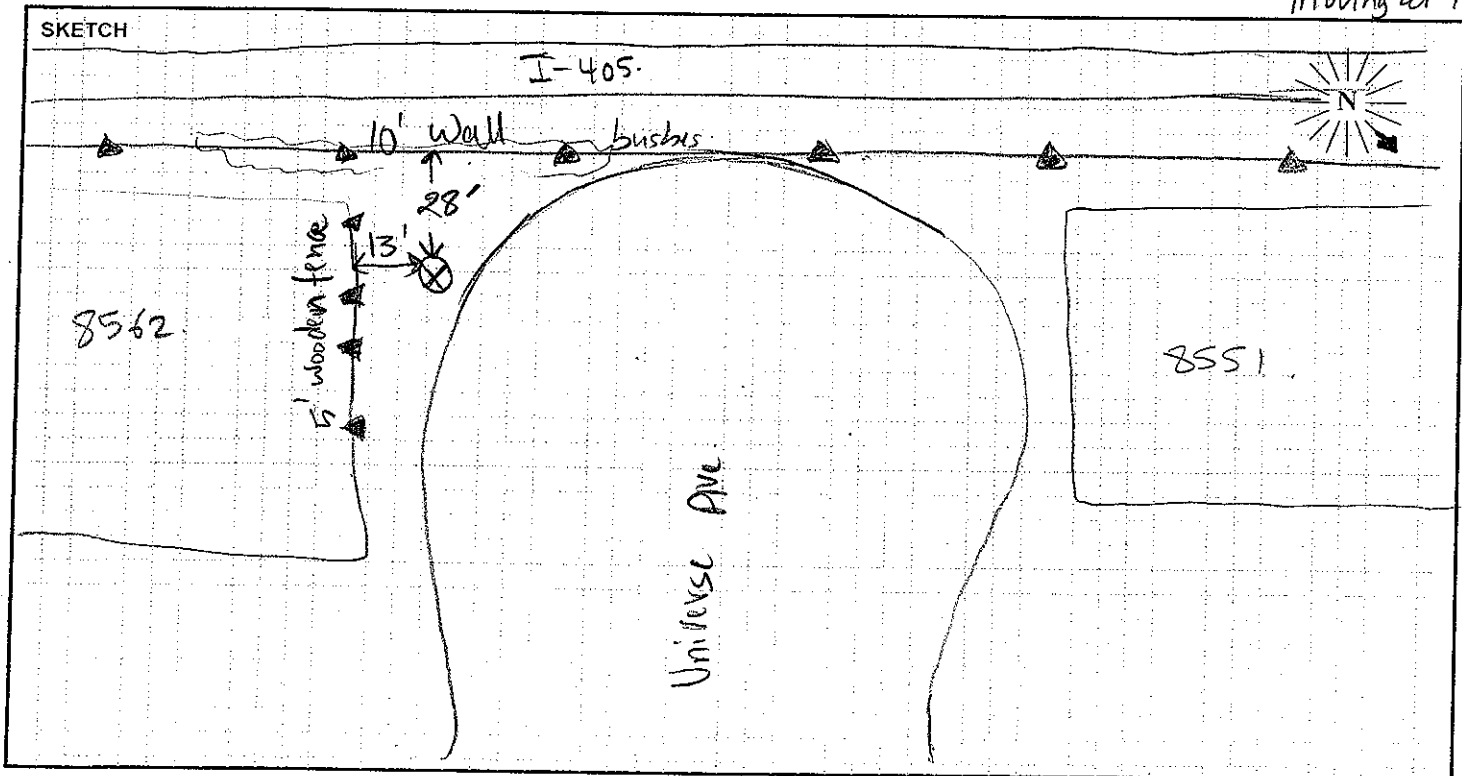 moving at
SKETCH
I-405.
N
10' Wall
bushes
28'
13'
5' wooden fence
8562.
8551.
Universe Ave.